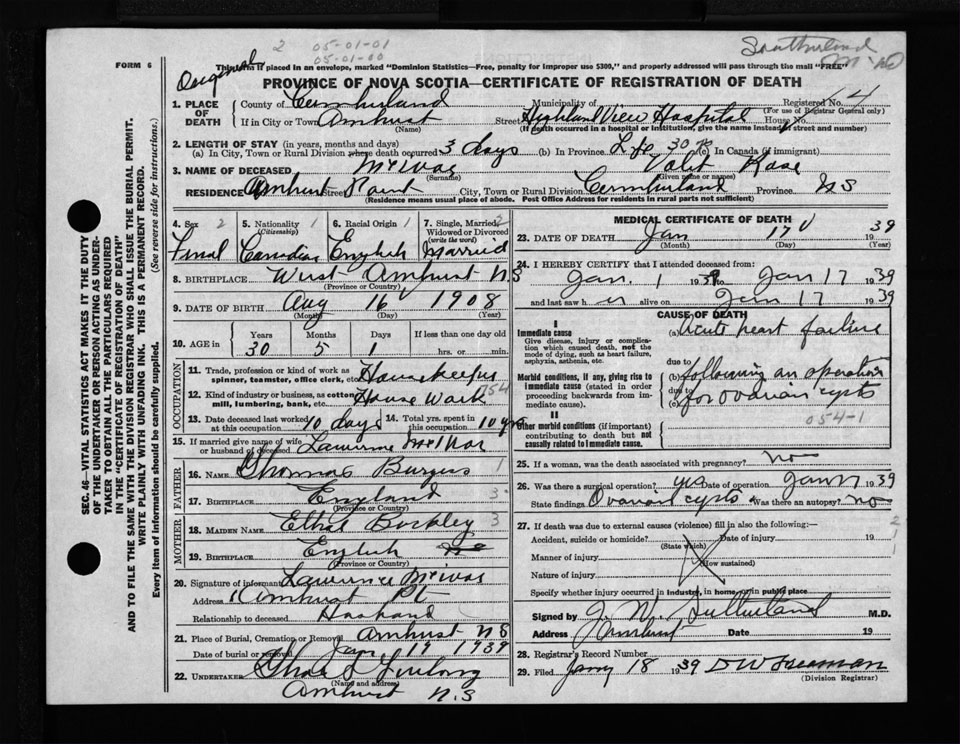 2 05-01-01
05-01-00
Sutherland
M.D.
FORM 6
Original
This form if placed in an envelope, marked "Dominion Statistics—Free, penalty for improper use $300," and properly addressed will pass through the mail "FREE"
PROVINCE OF NOVA SCOTIA—CERTIFICATE OF REGISTRATION OF DEATH
1. PLACE OF DEATH County of Cumberland Municipality of Registered No. 4
(For use of Registrar General only)
If in City or Town Amherst (Name) Street Highland View Hospital House
(If death occurred in a hospital or institution, give the name instead of street and number)
2. LENGTH OF STAY (in years, months and days)
(a) In City, Town or Rural Division where death occurred 3 days (b) In Province Life 30 (c) In Canada (if immigrant)
3. NAME OF DECEASED McIvor (Surname) Rose (Given name or names)
RESIDENCE Amherst Point City, Town or Rural Division Cumberland Province NS
(Residence means usual place of abode. Post Office Address for residents in rural parts not sufficient)
4. Sex 2 Femal
5. Nationality (Citizenship) 1 Canadian
6. Racial Origin 1 English
7. Single, Married, Widowed or Divorced (write the word) 2 Married
8. BIRTHPLACE West Amherst N.S
(Province or Country)
9. DATE OF BIRTH Aug 16 1908
(Month) (Day) (Year)
10. AGE in Years Months Days If less than one day old
30 5 1 hrs. or min.
OCCUPATION
11. Trade, profession or kind of work as spinner, teamster, office clerk, etc. Housekeeper
12. Kind of industry or business, as cotton mill, lumbering, bank, etc. House Work 754
13. Date deceased last worked at this occupation 10 days 14. Total yrs. spent in this occupation 10 yrs
15. If married give name of wife or husband of deceased Lawrence McIvor
FATHER
16. NAME Thomas Burgess 1
17. BIRTHPLACE England 3
(Province or Country)
MOTHER
18. MAIDEN NAME Ethel Bockley 3
19. BIRTHPLACE English
(Province or Country)
20. Signature of informant Lawrence McIvor
Address Amherst Pt
Relationship to deceased Husband
21. Place of Burial, Cremation or Removal Amherst N S
Date of burial or removal Jan 19 1939
22. UNDERTAKER Furlong
(Name and address)
Amherst N.S
MEDICAL CERTIFICATE OF DEATH
23. DATE OF DEATH Jan 17 1939
(Month) (Day) (Year)
24. I HEREBY CERTIFY that I attended deceased from:
Jan. 1 1939 to Jan 17 1939
and last saw her alive on Jan 17 1939
CAUSE OF DEATH
I
Immediate cause
Give disease, injury or complication which caused death, not the mode of dying, such as heart failure, asphyxia, asthenia, etc.
(a) Acute heart failure
due to
Morbid conditions, if any, giving rise to immediate cause (stated in order proceeding backwards from immediate cause).
(b) following an operation
due to
(c) for ovarian cysts
054-1
II
Other morbid conditions (if important) contributing to death but not causally related to immediate cause.
25. If a woman, was the death associated with pregnancy? no
26. Was there a surgical operation? yes Date of operation Jan 17 1939
State findings Ovarian cysts Was there an autopsy? no
27. If death was due to external causes (violence) fill in also the following:—
Accident, suicide or homicide? (State which) Date of injury 19
Manner of injury (How sustained)
Nature of injury
Specify whether injury occurred in industry, in home, or in public place
Signed by J. W. Sutherland M.D.
Address Amherst Date 19
28. Registrar's Record Number
29. Filed Jany 18 1939 D W Freeman
(Division Registrar)
SEC. 46—VITAL STATISTICS ACT MAKES IT THE DUTY OF THE UNDERTAKER OR PERSON ACTING AS UNDERTAKER TO OBTAIN ALL THE PARTICULARS REQUIRED IN THE "CERTIFICATE OF REGISTRATION OF DEATH" AND TO FILE THE SAME WITH THE DIVISION REGISTRAR WHO SHALL ISSUE THE BURIAL PERMIT.
WRITE PLAINLY WITH UNFADING INK. THIS IS A PERMANENT RECORD.
Every item of information should be carefully supplied. (See reverse side for instructions.)